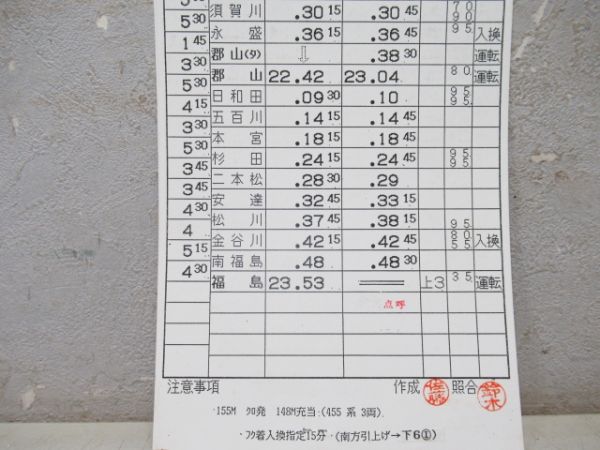 須賀川 .30 15 .30 45 70 90
5 30
永盛 .36 15 .36 45 95 入換
1 45
郡山(タ) ⇩ .38 30 運転
3 30
郡山 22.42 23.04 80 運転
5 30
日和田 .09 30 .10 95 95
4 15
五百川 .14 15 .14 45
3 45
本宮 .18 15 .18 45
5 30
杉田 .24 15 .24 45 95 95
3 45
二本松 .28 30 .29
3 45
安達 .32 45 .33 15
4 30
松川 .37 45 .38 15 95
4
金谷川 .42 15 .42 45 80 55 入換
5 15
南福島 .48 .48 30
4 30
福島 23.53 上3 35 運転
点呼
注意事項 作成 佐藤 照合 鈴木
155M クロ発 148M充当:(455系 3両)
フク着入換指定15分 (南方引上げ→下6①)